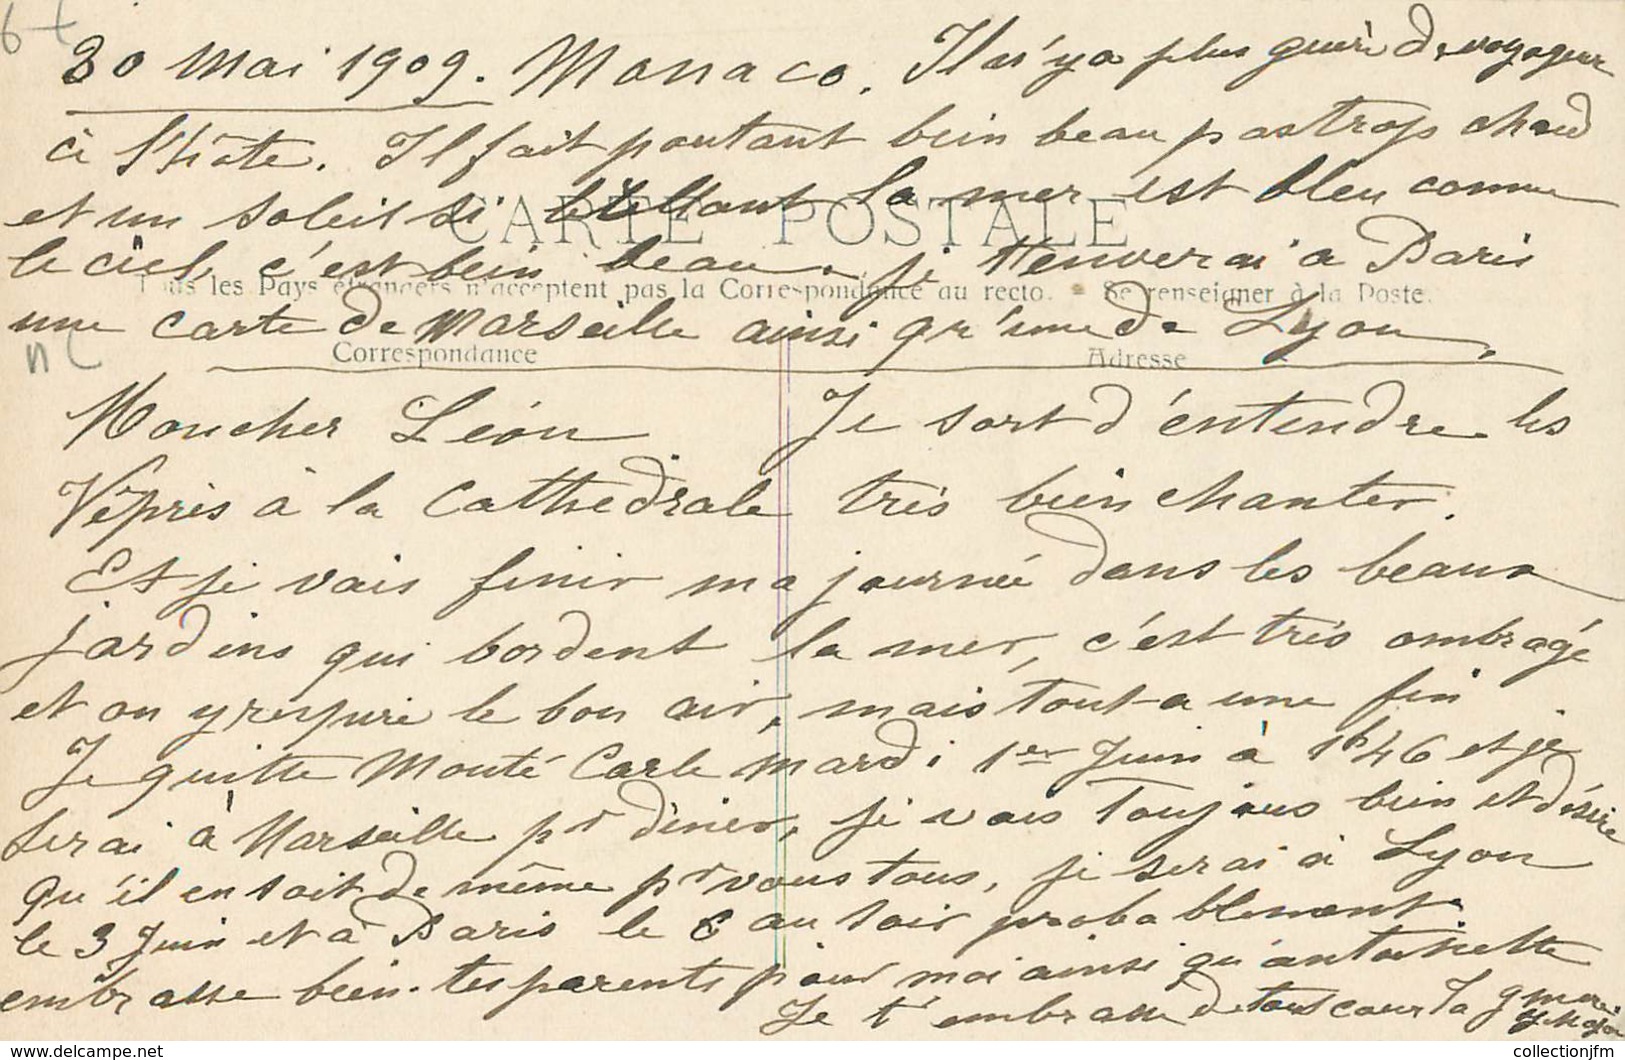 30 Mai 1909. Monaco. Il n'y a plus guère de voyageur
à l'hôte. Il fait pourtant bien beau pas trop chaud
et un soleil si brillant la mer est bleu comme
CARTE POSTALE
le ciel, c'est bien beau. je t'enverai à Paris
Tous les Pays étrangers n'acceptent pas la Correspondance au recto. - Se renseigner à la Poste.
une carte de Marseille ainsi qu'une de Lyon.
Correspondance Adresse
Moncher Léon Je sort d'entendre les
Vêpres à la Cathédrale très bien chanter.
Et je vais finir ma journée dans les beaux
jardins qui bordent la mer, c'est très ombragé
et on y respire le bon air, mais tout a une fin
Je quitte Monté Carle mardi 1er Juin à 1h46 et je
serai à Marseille pr diner, je vais toujours bien et désire
qu'il en soit de même pr vous tous, je serai à Lyon
le 3 Juin et à Paris le 6 au soir probablement.
embrasse bien tes parents pour moi ainsi qu'antoinette
Je t'embrasse de tout cœur Ta gmère
collectionjfm